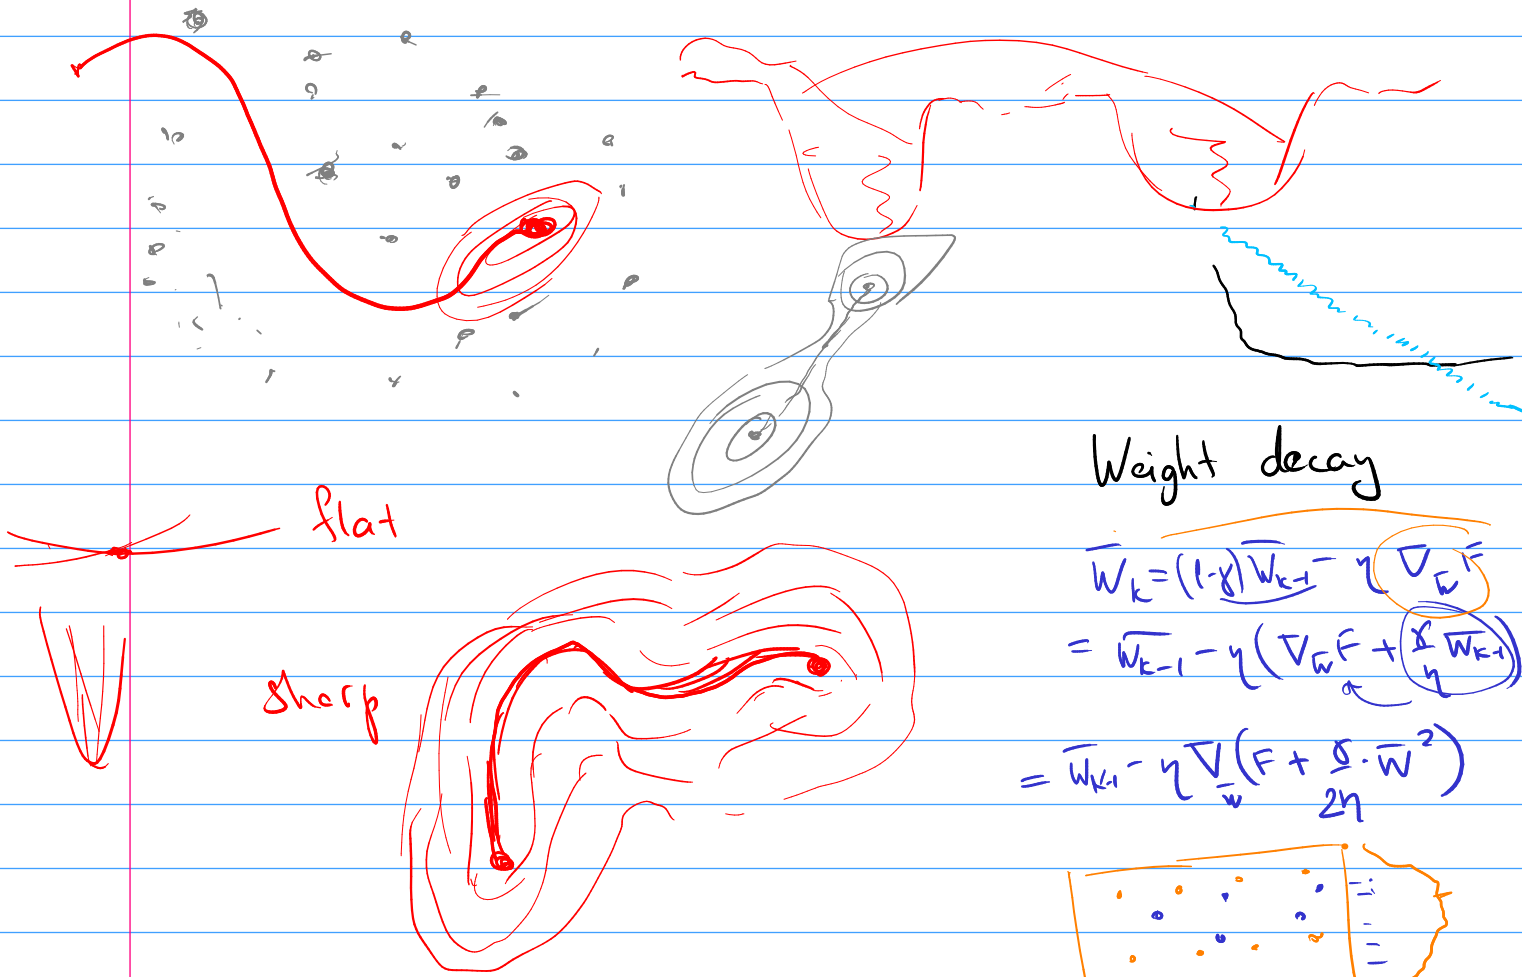 flat
sharp
Weight decay
w̄ₖ = (1-γ) w̄ₖ₋₁ - η ∇_w̄ F
= w̄ₖ₋₁ - η (∇_w̄ F + γ/η w̄ₖ₋₁)
= w̄ₖ₋₁ - η ∇_w̄ (F + γ/2η · w̄²)